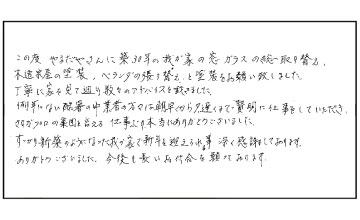 この度 やまだやさんに築30年の我が家の窓ガラスの総取り替え、
木造家屋の塗装、ベランダの張り替えと塗装をお願い致しました。
丁寧に家を見て廻り数々のアドバイスを頂きました。
例年にない酷暑の中業者の方々は朝早から夕遅くまで賢明に仕事をしていただき、
さすがプロの集団と言える仕事ぶり本当にありがとうございました。
すっかり新築のようになった我が家で新年を迎える事 深く感謝しております。
ありがとうございました。今後も長いお付合を願っております。